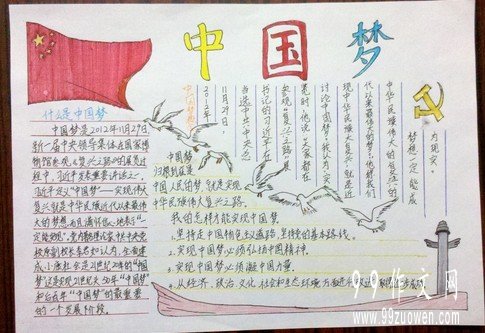 中国梦
什么是中国梦
中国梦是2012年11月29日
新一届中央领导集体在国家博
物馆参观《复兴之路》的展览过
程中,习近平发表重要讲话之一。
习近平定义“中国梦”——实现伟大
复兴就是中华民族近代以来最伟
大的梦想,而且满怀信心地表示“一
定能实现”。
中国梦想
2012年
11月29日,
当选中共中央总
书记的习近平在
参观“复兴之路”展
览时,他说,大家都在
讨论中国梦,我认为实
现中华民族伟大复兴,就是近
代以来最伟大的梦!
中华民族伟大的复兴的
梦想一定能成
为现实。
中国梦
归根到底是
中国人民的梦,就是实现
中华民族伟大复兴。
我们怎样才能实现中国梦
1.坚持走中国特色主义道路,坚持党的基本路线。
2.实现中国梦必须弘扬中国精神。
3.实现中国梦必须凝中国力量。
4.从经济、政治、文化、社会和生态环境方面
99作文网
www.99zuowen.com